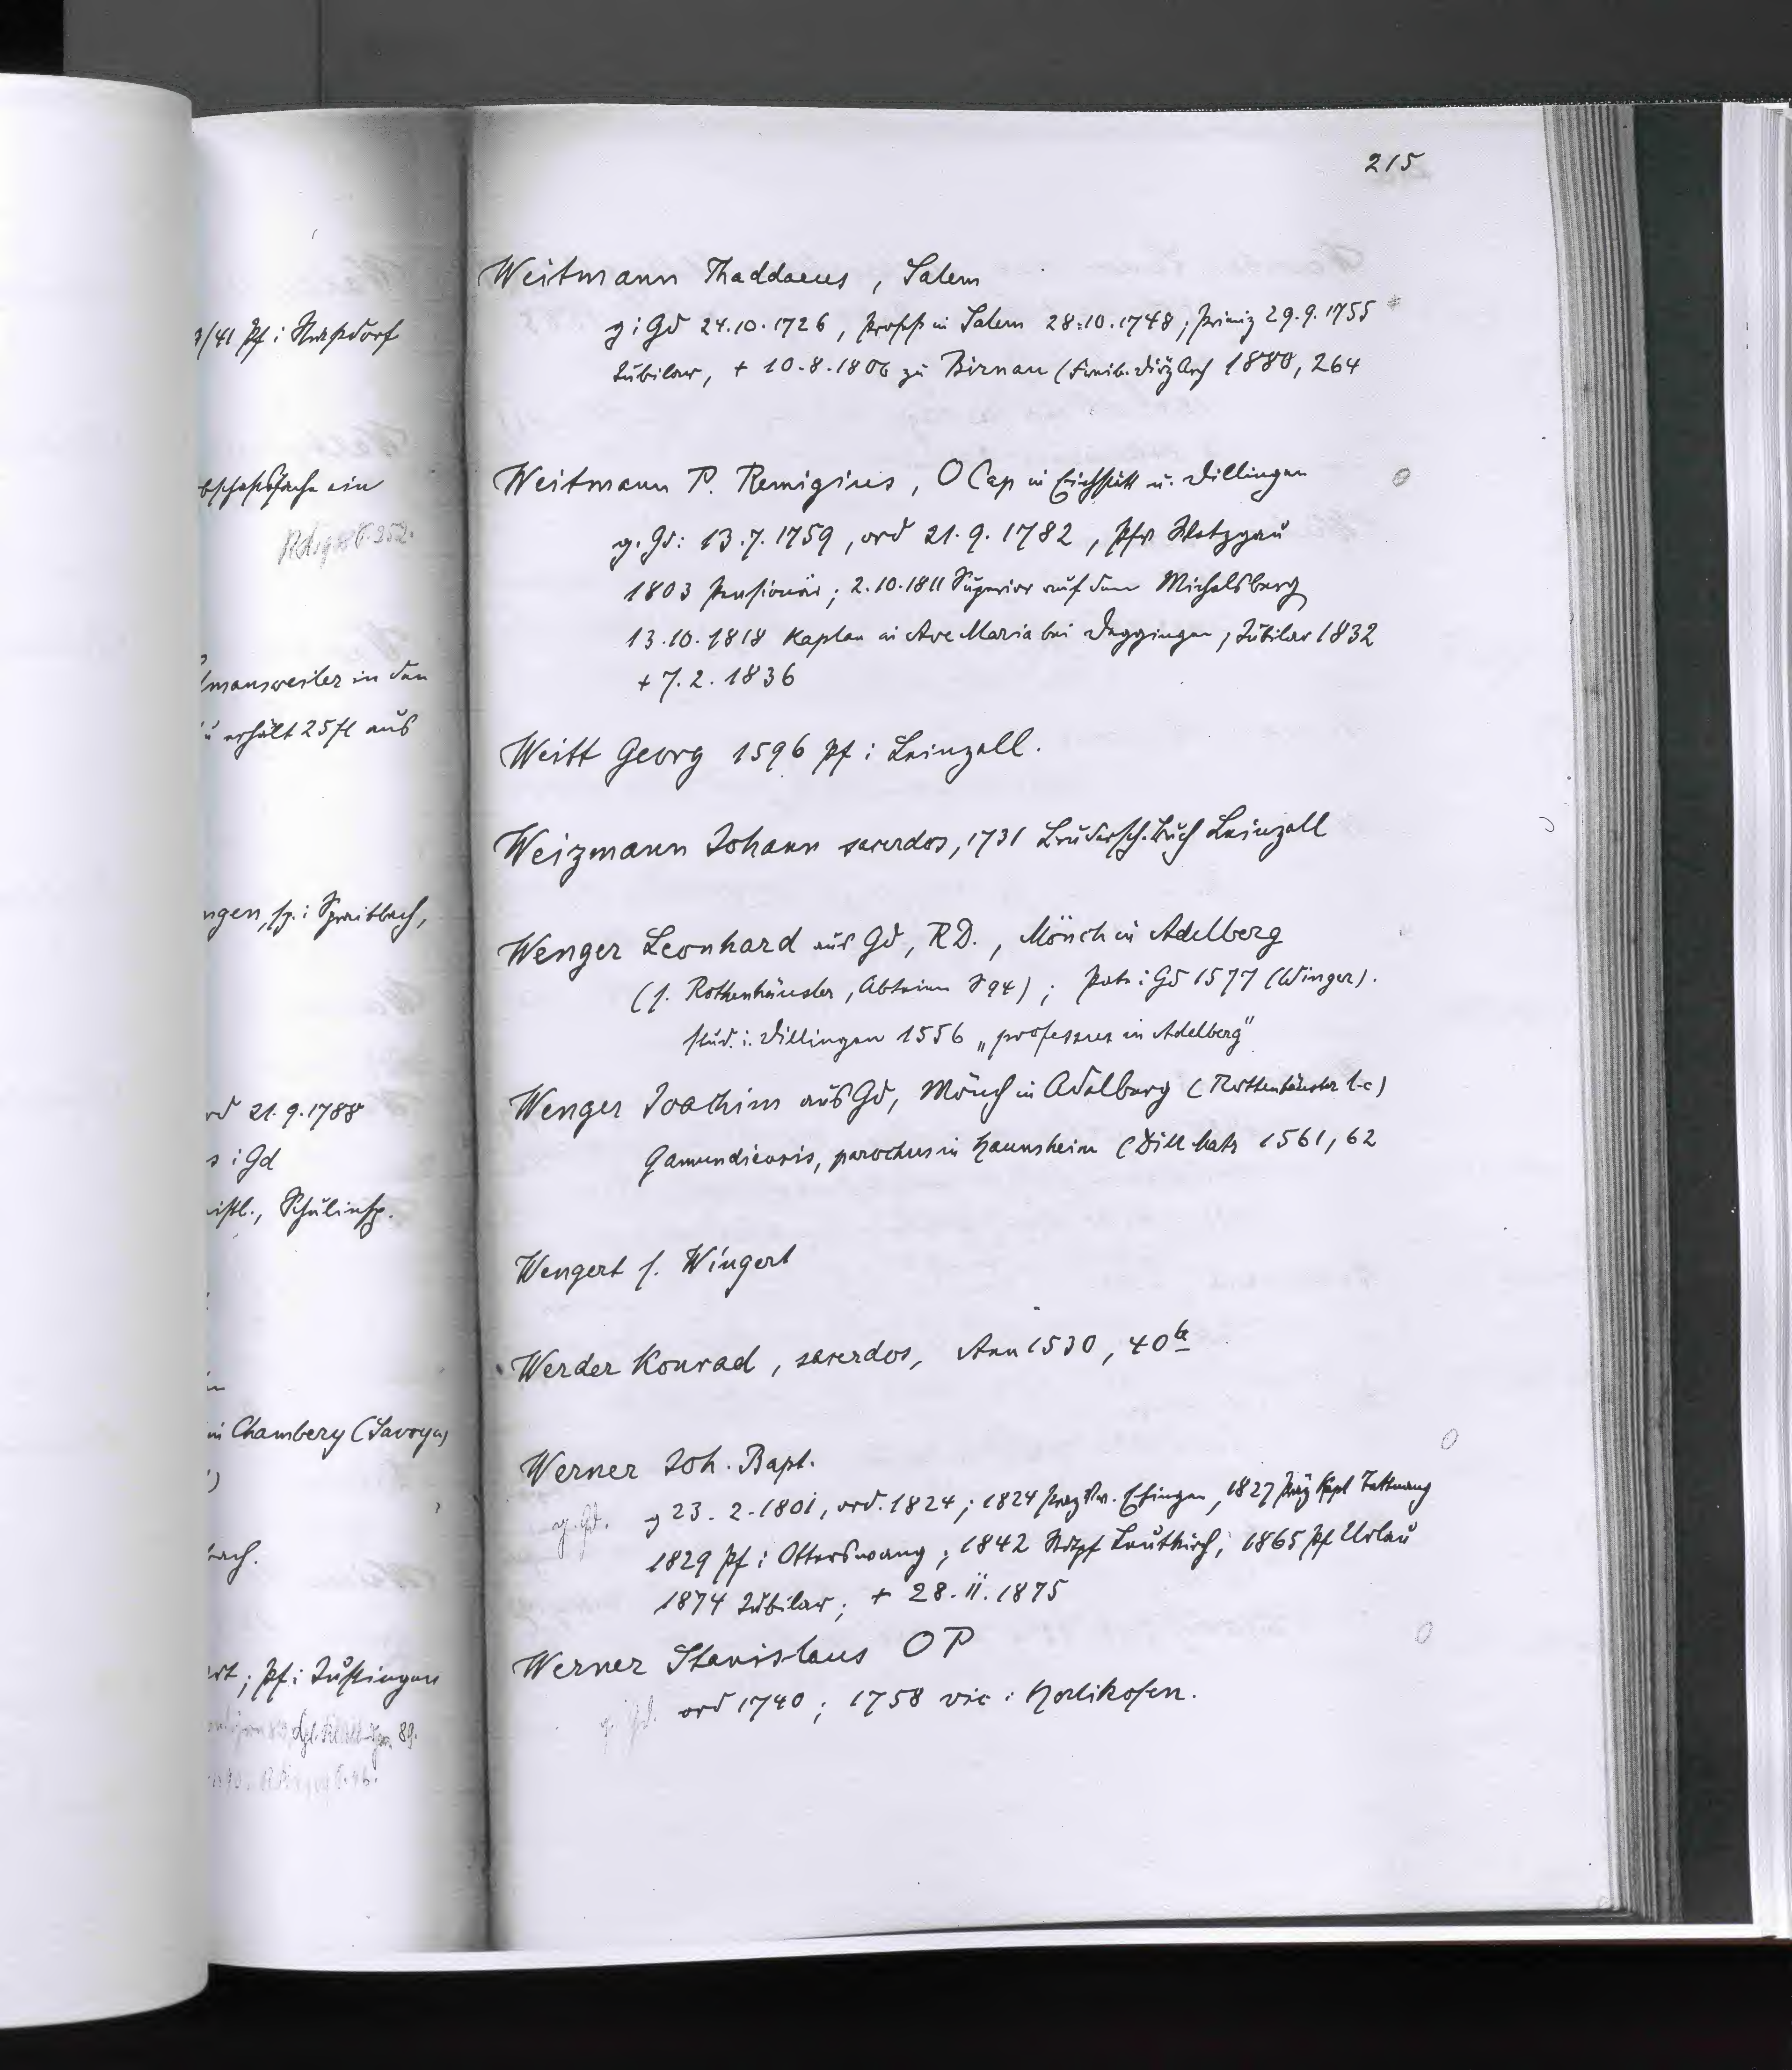 215
/41 Pf: Nußdorf
ein
S. 252.
mansweiler in den
erhält 25 fl aus
ngen, sp: Spraitbach,
rd 21.9.1788
s i Gd
istl., Schulinsp.
in Chambery (Savoyen)
bach.
rt; Pf: Justingen
89.
Weitmann Thaddaeus, Salem
g i Gd 24.10.1726, Profeß in Salem 28.10.1748; Primiz 29.9.1755
Jubilar, + 10.8.1806 zu Birnau (Freib. DiözArch 1880, 264
Weitmann P. Remigius, O Cap in Eichstätt u. Dillingen
g. Gd: 13.7.1759, ord 21.9.1782, Pfv Wetzgau
1803 Pensionär; 2.10.1811 Superior auf dem Michelsberg
13.10.1818 Kaplan in Ave Maria bei Deggingen, Jubilar 1832
+ 7.2.1836
Weitt Georg 1596 Pf i Leinzell.
Weizmann Johann sacerdos, 1731 Brudersch. Buch Leinzell
Wenger Leonhard aus Gd, RD., Mönch in Adelberg
(s. Rothenhäusler, Abteien S 94); Pate i Gd 1577 (Winger).
stud. i. Dillingen 1556 „professus in Adelberg"
Wenger Joachim aus Gd, Mönch in Adelberg (Rothenhäusler l.c)
Gamundiensis, parochus in Haunsheim (Dill Matr 1561, 62
Wengert s. Wingert
Werder Konrad, sacerdos, Ann 1530, 40b
Werner Joh. Bapt.
g. Gd. g 23.2.1801, ord. 1824; 1824 Ehingen, 1827 Kapl Tettnang
1829 Pf i Otterswang; 1842 Stdtpf Leutkirch; 1865 Pf Urlau
1874 Jubilar; + 28.11.1875
Werner Stanislaus OP
g. Gd. ord 1740; 1758 vic i Horlikofen.